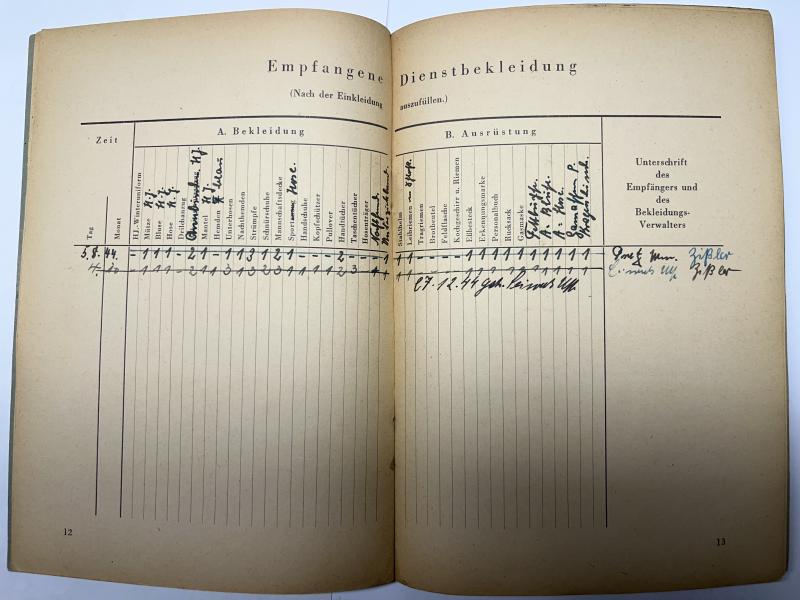 Empfangene Dienstbekleidung
(Nach der Einkleidung auszufüllen.)
Zeit
A. Bekleidung
B. Ausrüstung
Unterschrift
des
Empfängers und
des
Bekleidungs-
Verwalters
Tag
Monat
HJ.-Winteruniform
Mütze H.J.
Bluse H.J.
Hose
Drillichanzug
Armbinden H.J.
Mantel H.J.
Hemden
Unterhosen
Nachthemden
Strümpfe
Schnürschuhe
Mannschaftsdecke
Sport Hose
Handschuhe
Kopfschützer
Pullover
Handtücher
Taschentücher
Hosenträger
Stahlhelm
Leibriemen
Tragriemen
Brotbeutel
Feldflasche
Kochgeschirr u. Riemen
Eßbesteck
Erkennungsmarke
Personalbuch
Rucksack
Gasmaske
A. Bluse
A. Hose
Gamaschen P.
5. 8. 44. – 1 1 1 – 2 1 1 1 1 3 1 2 1 – – – 2 – – – 1 1 1 – – – – 1 1 1 1 1 1 1 1 1 1 Zißler
4. 10 – 1 1 1 – 2 1 3 1 3 2 3 1 1 1 1 2 3 – 1 + 1 1 – – – – 1 1 1 1 1 1 1 1 1 1 Zißler
27. 12. 44
12
13